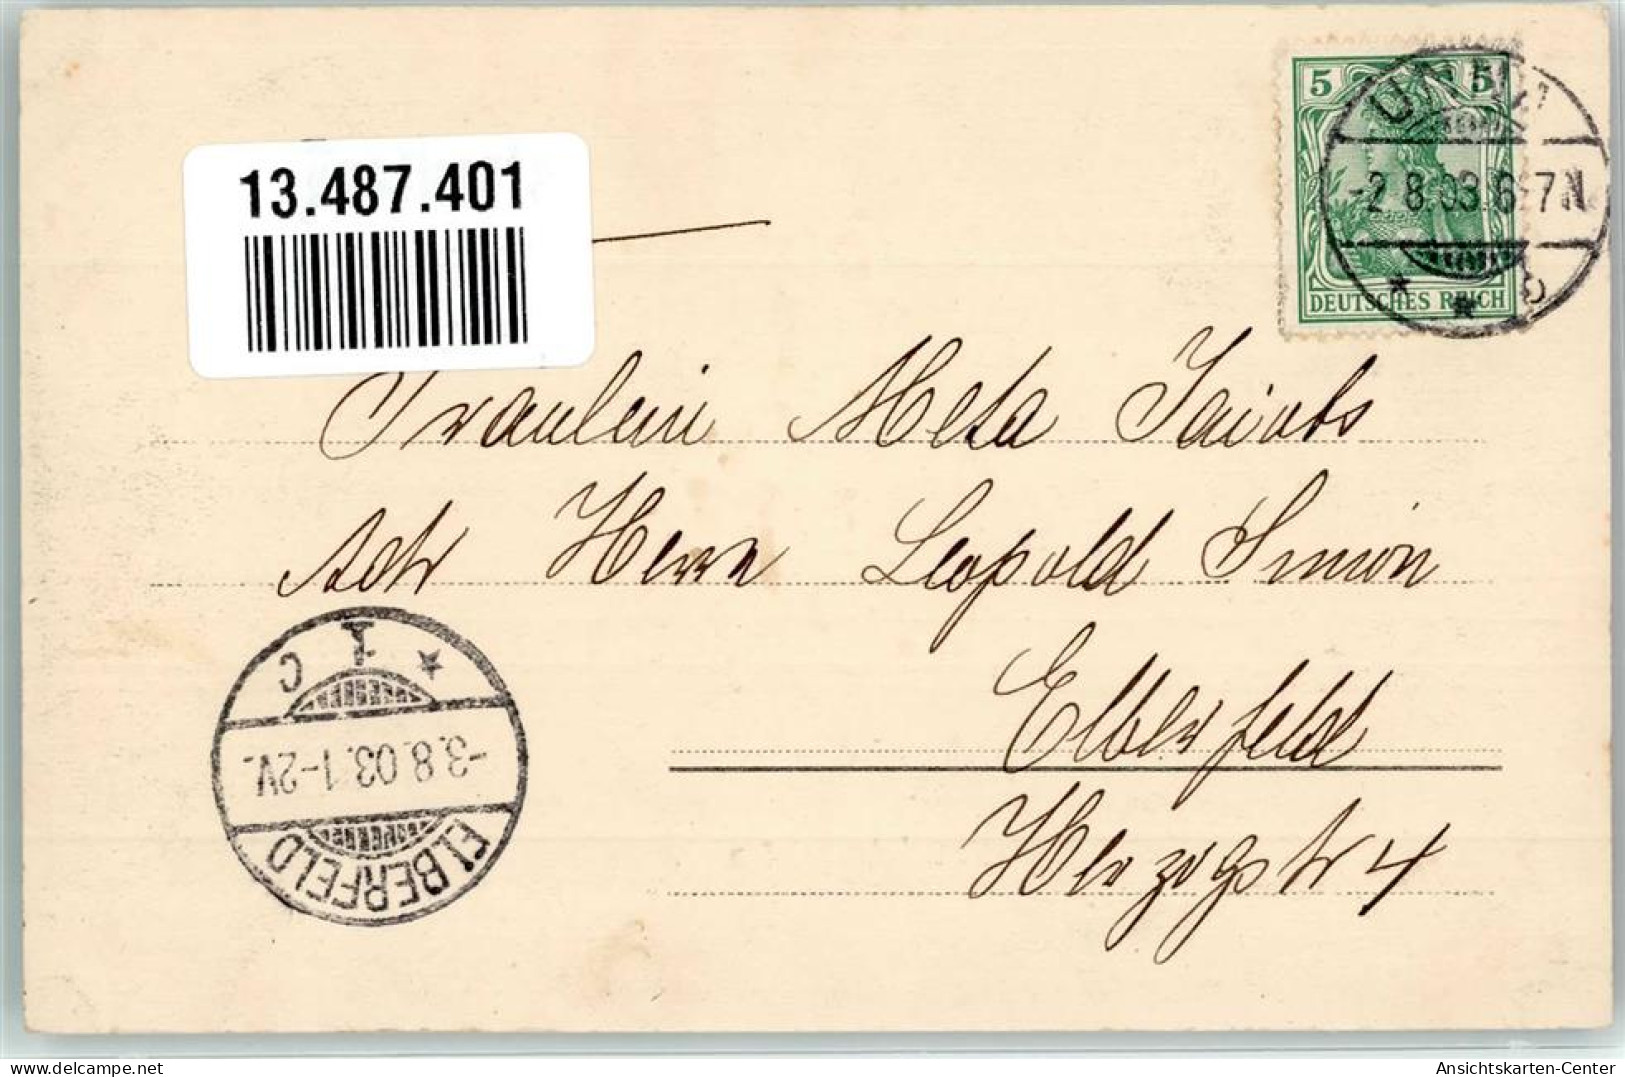 13.487.401
5 5
DEUTSCHES REICH
UNNA
-2.8.03.6-7N
* * b
Fräulein Meta Jacobs
Adr Herrn Leopold Simon
Elberfeld
Herzogstr 4
ELBERFELD
-3.8.03.1-2V.
* 1 C
Ansichtskarten-Center